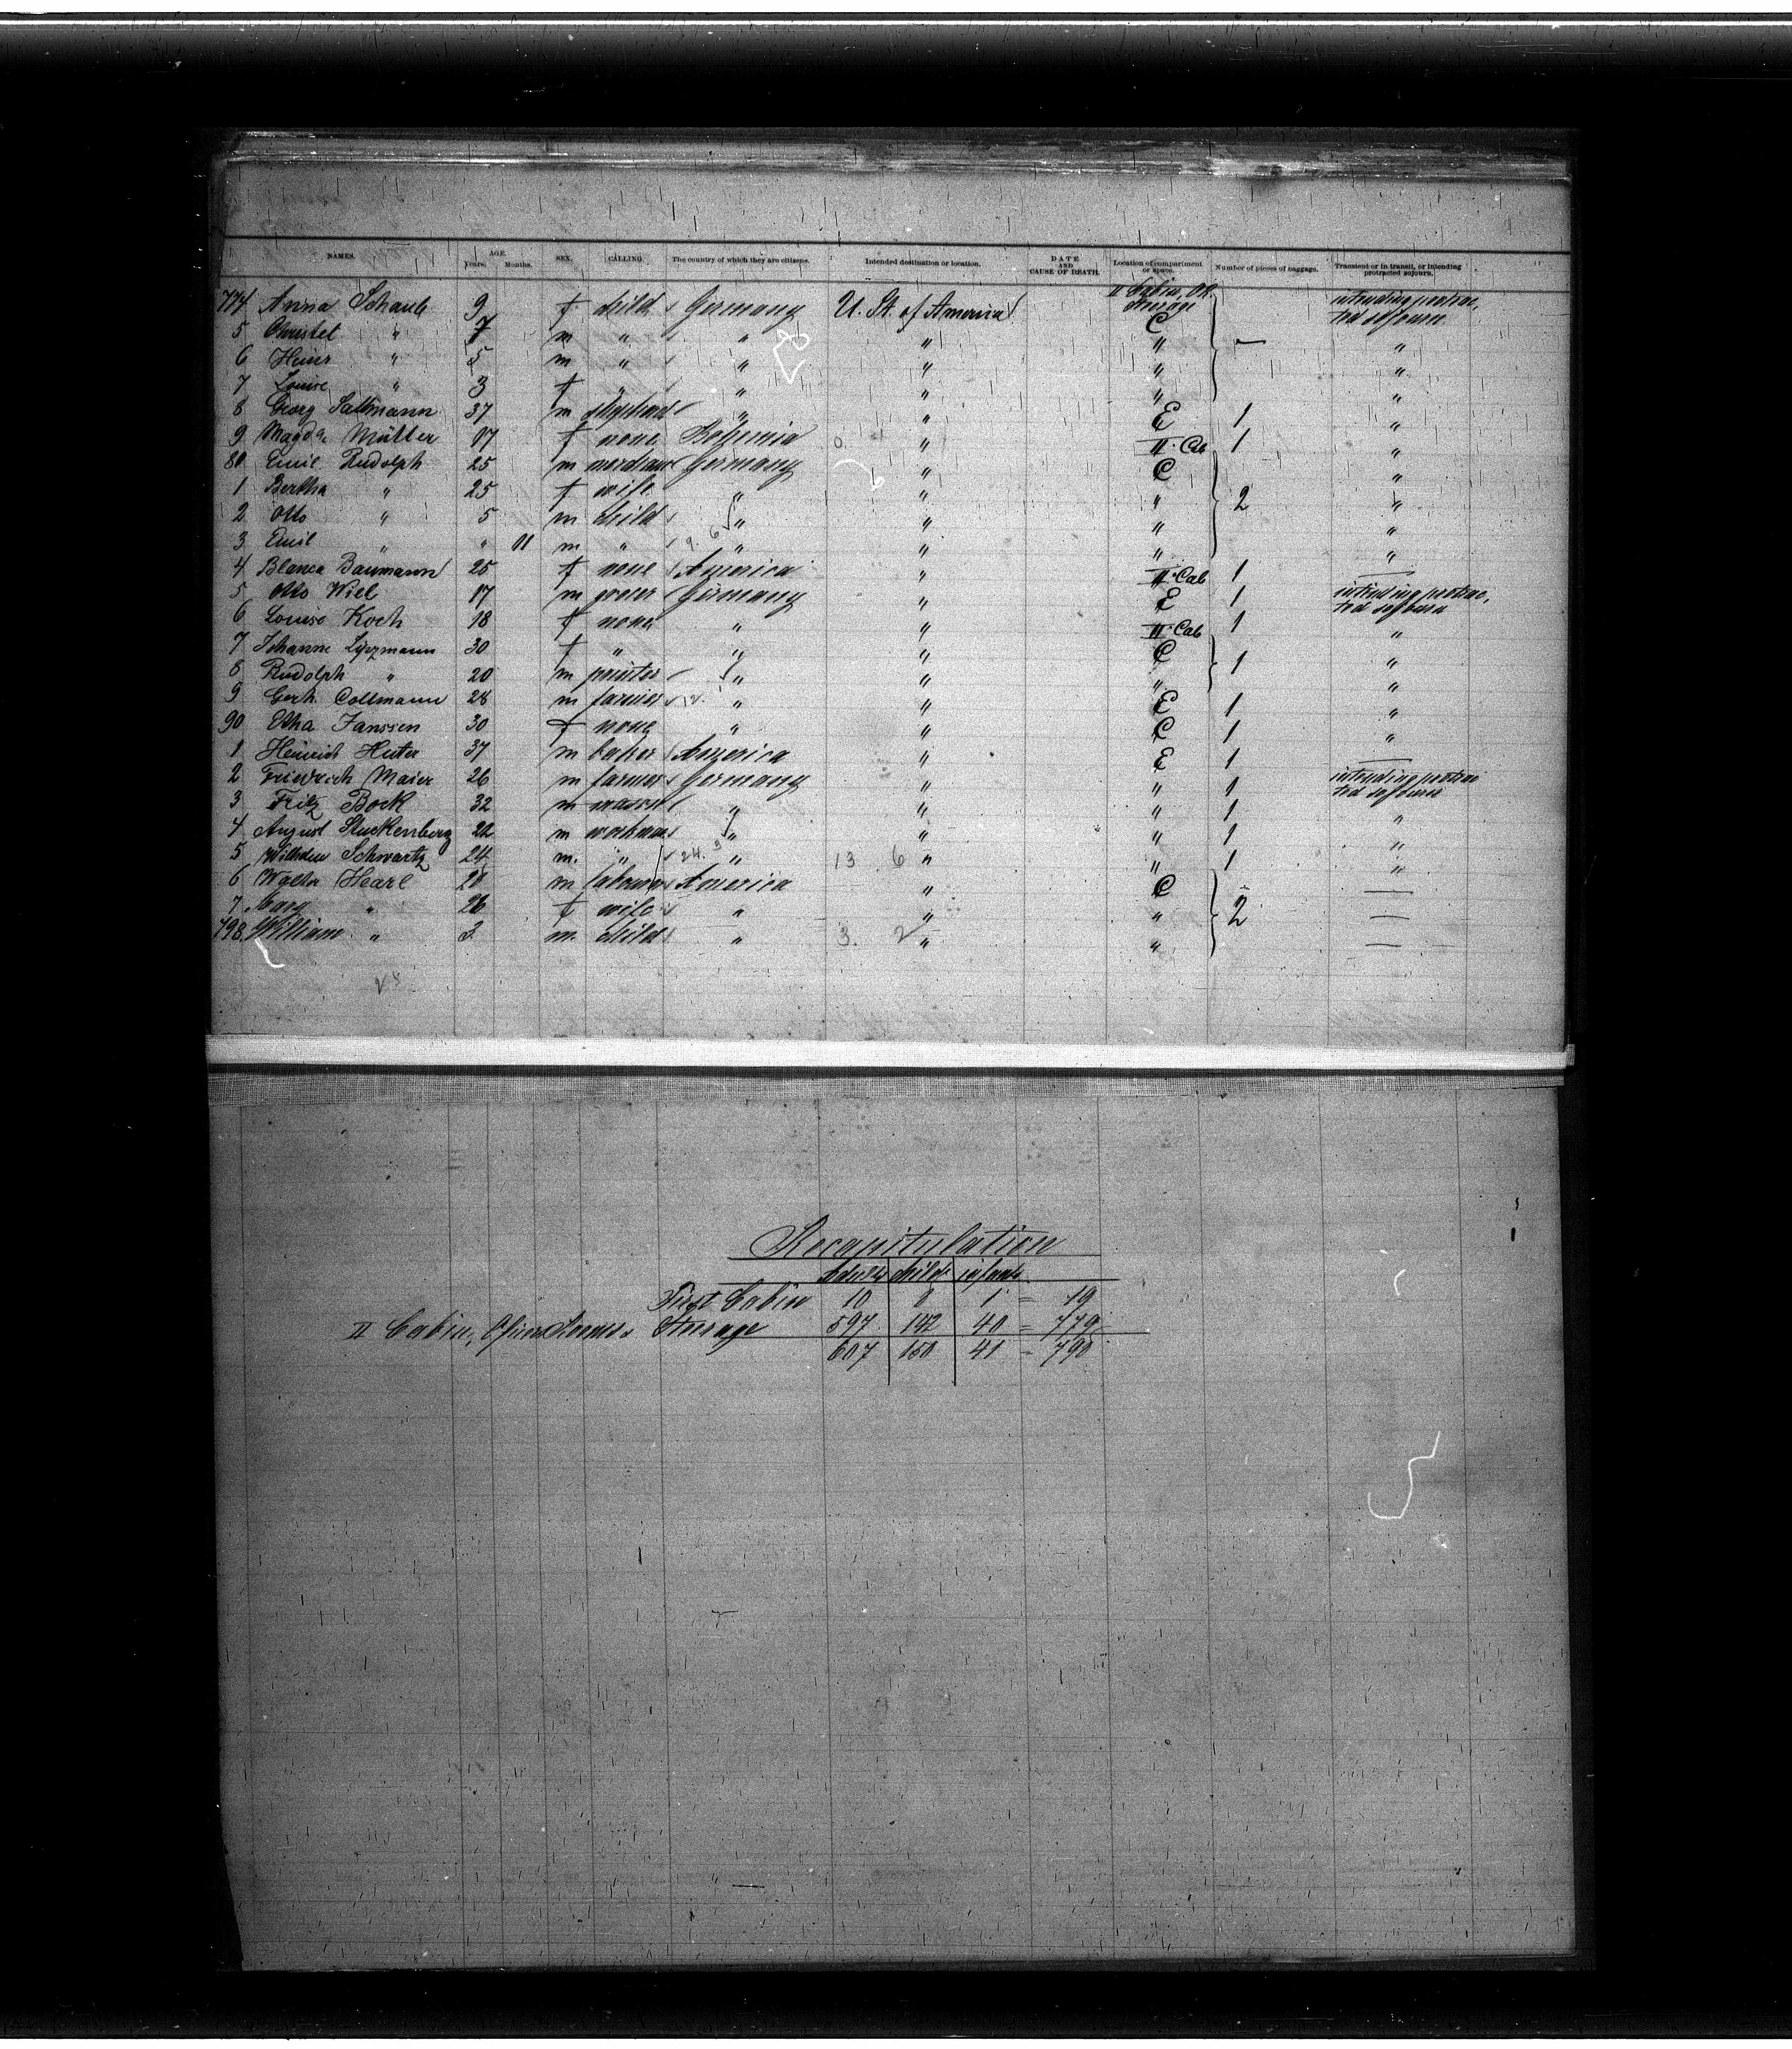 NAMES. AGE. Years. Months. SEX. CALLING The country of which they are citizens. Intended destination or location. DATE AND CAUSE OF DEATH. Location of compartment or space. Number of pieces of baggage. Transient or in transit, or intending protracted sojourn.
II Cabin, OR. Steerage
774 Anna Schaub 9 f child Germany U. St. of America C intending protrac, ted sojourn
5 Christel " 7 m " " " " — "
6 Heinr " 5 m " " " " "
7 Louise " 3 f " " " " "
8 Georg Saltmann 37 m " " E 1 "
9 Magda Müller 17 f none Bohemia " II. Cab 1 "
80 Emil Rudolph 25 m Germany " C "
1 Bertha " 25 f wife " " " 2 "
2 Otto " 5 m child " " " "
3 Emil " " 11 m " 9. 6 " " " "
4 Blanca Baumann 25 f none America " II. Cab 1 —
5 Otto Wiel 17 m Germany " E 1 intending protrac, ted sojourn
6 Louise Koch 18 f none " " II. Cab 1 "
7 Johanne 30 f " " " C 1 "
8 Rudolph " 20 m printer " " " "
9 Gerh. Collmann 28 m farmer 12. " " E 1 "
90 Etha Janssen 30 f none " " C 1 "
1 Heinrich Huter 37 m baker America " E 1 —
2 Friedrich Maier 26 m farmer Germany " " 1 intending protrac ted sojourn
3 Fritz Bock 32 m mason " " " 1 "
4 August Stuckenberg 22 m workman " " " 1 "
5 Wilhelm Schwartz 24 m. " 24. 3 " 13 6 " " 1 "
6 Walter Hearl 28 m labourer America " C —
7 Mary " 26 f wife " " " 2 —
798. William " 2 m. child " 3. 2 " " —
Recapitulation
Adults childr infants
First Cabin 10 8 1 = 19
II Cabin, Steerage 597 142 40 = 779
607 150 41 = 798